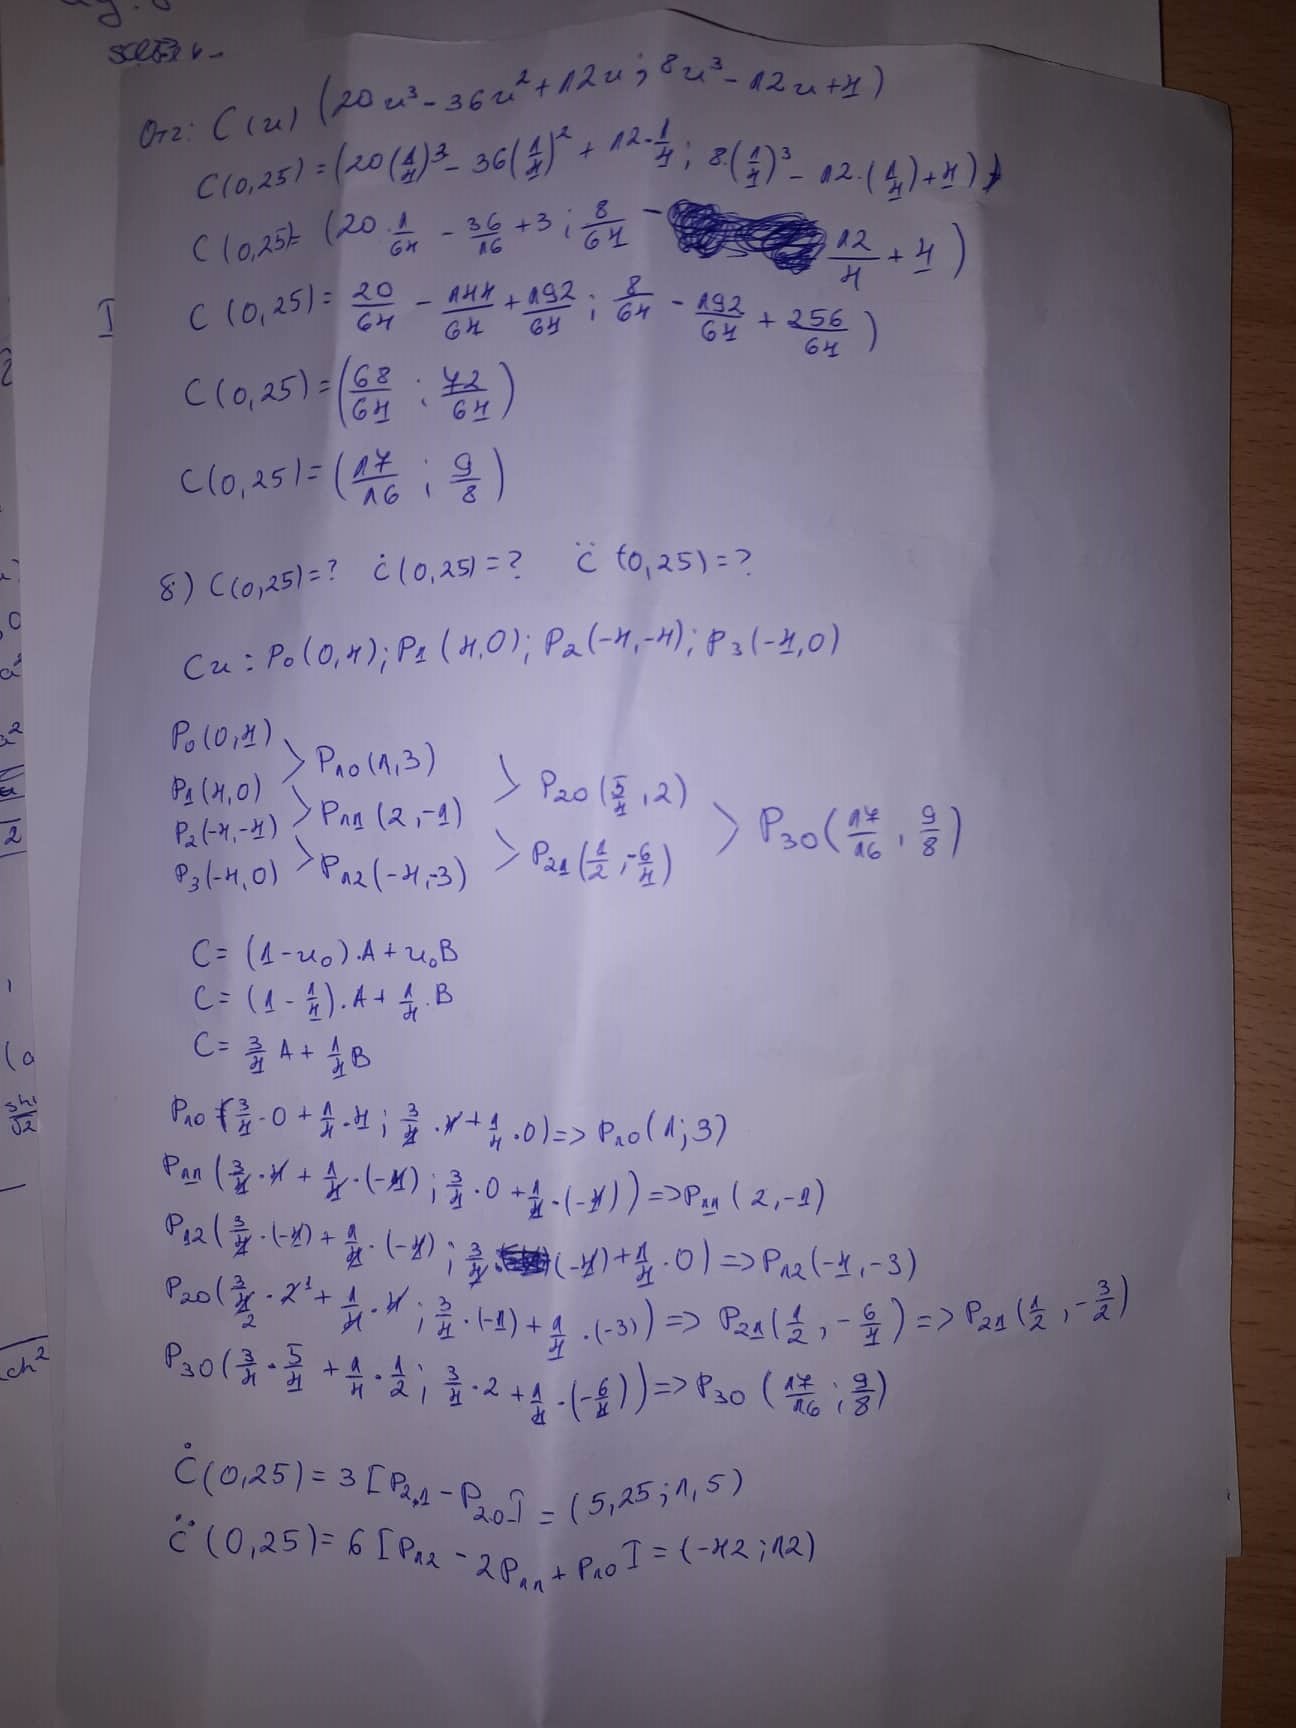 Отг: C(u) (20u³ - 36u² + 12u ; 8u³ - 12u + 4)
C(0,25) = (20(1/4)³ - 36(1/4)² + 12·1/4 ; 8·(1/4)³ - 12·(1/4) + 4)
C(0,25) = (20·1/64 - 36/16 + 3 ; 8/64 - 12/4 + 4)
I C(0,25) = 20/64 - 144/64 + 192/64 ; 8/64 - 192/64 + 256/64)
C(0,25) = (68/64 ; 72/64)
C(0,25) = (17/16 ; 9/8)
б) C(0,25) = ? Ċ(0,25) = ? C̈(0,25) = ?
Cu : P₀(0,4); P₁(4,0); P₂(-4,-4); P₃(-4,0)
P₀(0,4)
P₁(4,0)
P₂(-4,-4)
P₃(-4,0)
> P₁₀(1,3)
> P₁₁(2,-1)
> P₁₂(-4,-3)
> P₂₀(5/4, 2)
> P₂₁(1/2, -6/4)
> P₃₀(17/16, 9/8)
C = (1-u₀).A + u₀B
C = (1 - 1/4).A + 1/4.B
C = 3/4 A + 1/4 B
P₁₀(3/4·0 + 1/4·4 ; 3/4·4 + 1/4·0) => P₁₀(1;3)
P₁₁(3/4·4 + 1/4·(-4) ; 3/4·0 + 1/4·(-4)) => P₁₁(2,-1)
P₁₂(3/4·(-4) + 1/4·(-4) ; 3/4·(-4) + 1/4·0) => P₁₂(-4,-3)
P₂₀(3/4·2 + 1/4·4 ; 3/4·(-1) + 1/4·(-3)) => P₂₁(1/2, -6/4) => P₂₁(1/2, -3/2)
P₃₀(3/4·5/4 + 1/4·1/2 ; 3/4·2 + 1/4·(-6/4)) => P₃₀(17/16 ; 9/8)
Ċ(0,25) = 3[P₂,₁ - P₂₀] = (5,25 ; 1,5)
C̈(0,25) = 6[P₁₂ - 2P₁₁ + P₁₀] = (-42 ; 12)